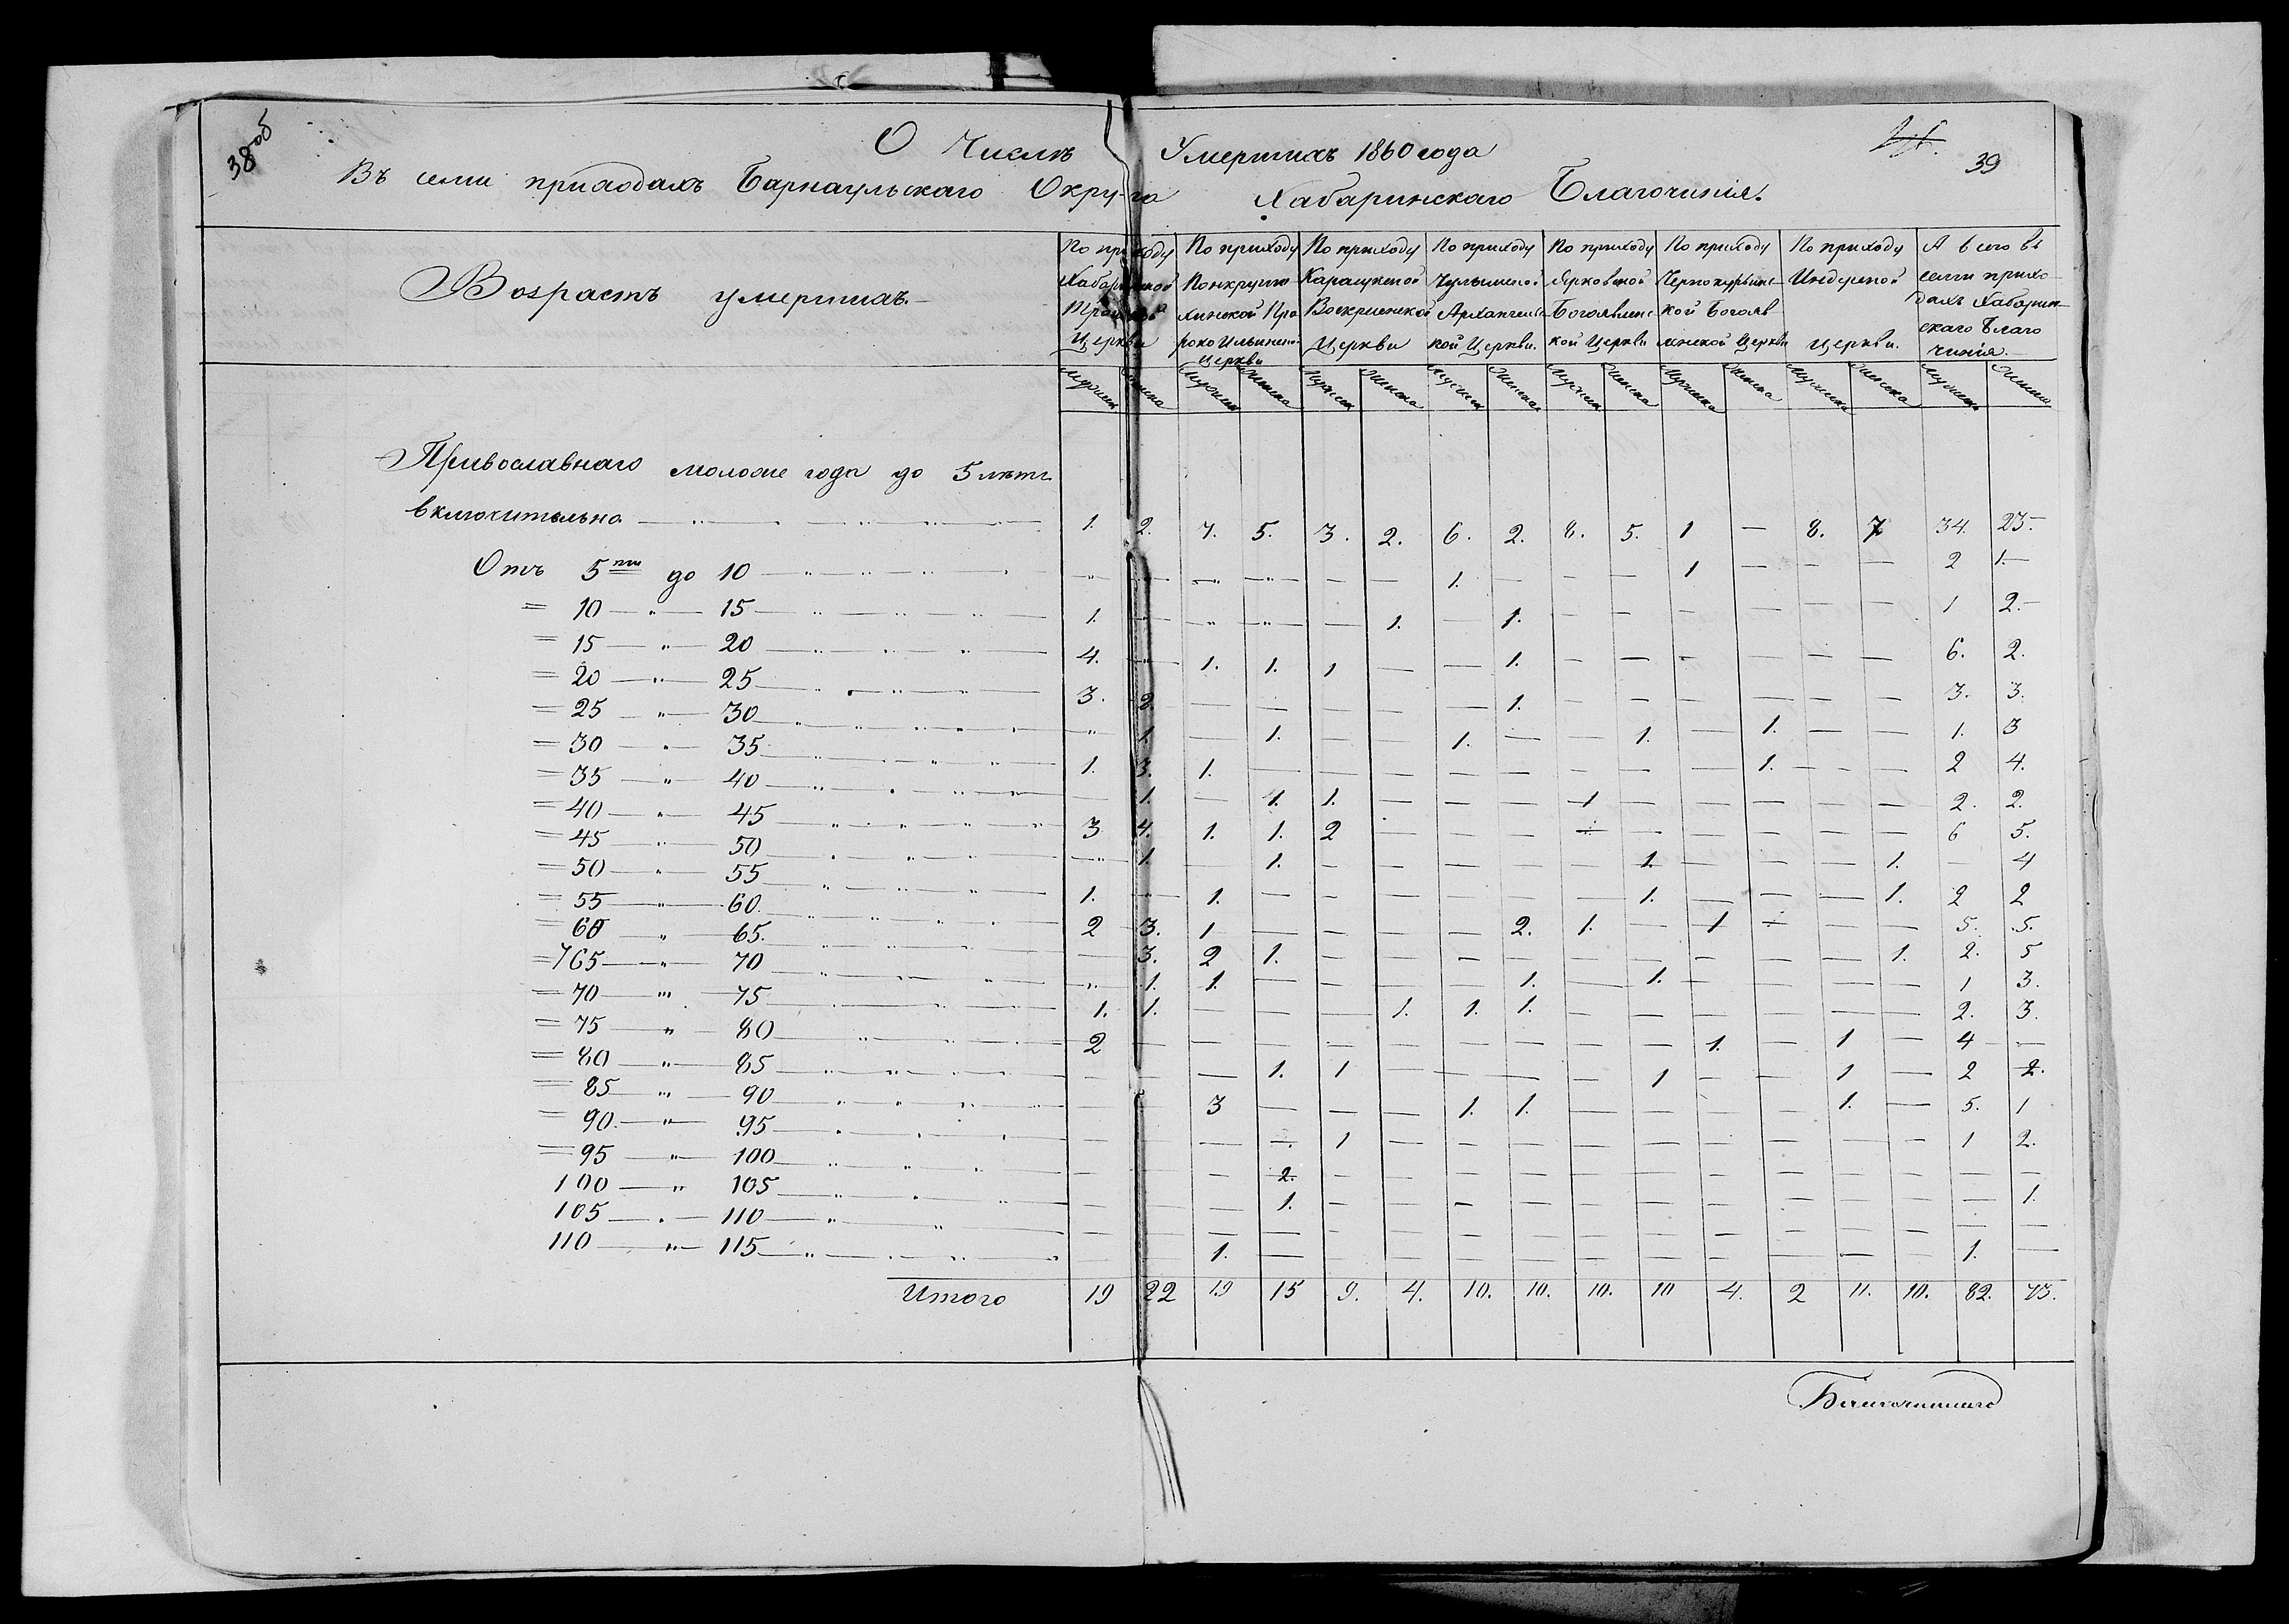 38об
О Числѣ Умершихъ 1860 года
39
Въ семи приходахъ Барнаульскаго Округа Хабаринскаго Благочинія.
Возрастъ умершихъ.
По приходу Хабаринской Троицкой Церкви
По приходу Панкрушихинской Пророко Ильинской Церкви
По приходу Карасукской Воскресенской Церкви
По приходу Чулымской Архангельской Церкви.
По приходу Богоявленской Церкви
По приходу Чернокурьинской Богоявленской Церкви
По приходу Индерской Церкви.
А всего въ семи приходахъ Хабаринскаго Благочинія.
Православнаго моложе года до 5 лѣтъ
включительно 1. 2. 7. 5. 3. 2. 6. 2. 8. 5. 1 — 8. 7 34. 23.
Отъ 5ти до 10 „ — — — — — 1. — — — 1 — — — 2 1.
= 10 — „ — 15 1. — „ — — 1. — 1. — — — — — — 1 2.
= 15 — „ — 20 4. — 1. 1. 1 — — 1. — — — — — — 6. 2.
= 20 — „ — 25 3. 2. — — — — — 1. — — — — — — 3. 3.
= 25 — „ — 30 „ 1. — 1. — — 1. — — 1. — 1. — — 1. 3
= 30 — „ — 35 1. 3. 1. — — — — — — — — 1. — — 2 4.
= 35 — „ — 40 — 1. — 1. 1. — — — 1 — — — — — 2. 2.
= 40 — „ — 45 3 4. 1. 1. 2 — — — — — — — — — 6 5.
= 45 — „ — 50 — 1. — 1. — — — — — 1. — — — 1. — 4
= 50 — „ — 55 1. — 1. — — — — — — 1. — — — 1. 2 2
= 55 — „ — 60. 2 3. 1 — — — — 2. 1. — 1 — — — 5. 5.
= 60 „ — 65. — 3. 2 1. — — — — — — — — — 1. 2. 5
= 65 — „ — 70 „ 1. 1. — — — — 1. — 1. — — — — 1 3.
= 70 — „ — 75 1. 1. — — — 1. 1. 1. — — — — — — 2. 3.
= 75 — „ — 80 2 — — — — — — — — — 1. — 1 — 4 —
= 80 — „ — 85 — — — 1. 1 — — — — 1 — — 1 — 2 2.
= 85 — „ — 90 — 3 — — — 1. 1. — — — — 1. — 5. 1
= 90. — „ — 95 — — — 1 — — — — — — — — — 1 2.
= 95 — „ — 100 — — 2. — — — — — — — — — — — —
100 — „ 105 — — — 1. — — — — — — — — — — — 1.
105 — „ — 110 — — — — — — — — — — — — — — — —
110 — „ — 115 — 1. — — — — — — — — — — — 1. —
Итого 19 22 19 15 9. 4. 10. 10. 10. 10 4. 2 11. 10. 82. 73.